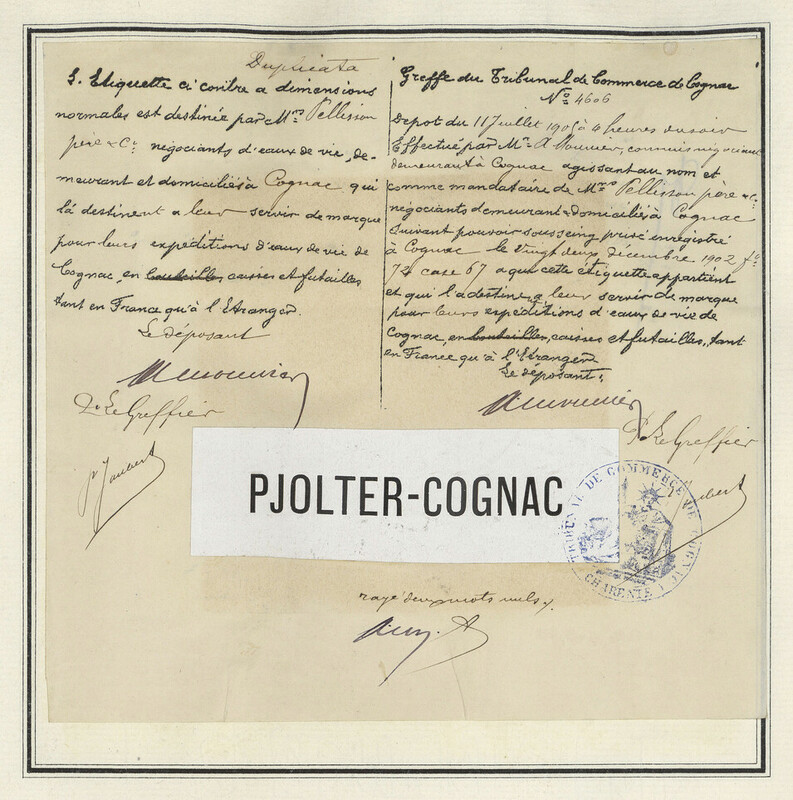 Duplicata
L'Etiquette ci contre a dimensions
normales est destinée par Mrs Pellisson
père & Cie négociants d'eaux de vie, de-
meurant et domiciliés à Cognac qui
la destinent a leur servir de marque
pour leurs expéditions d'eaux de vie de
Cognac, en bouteilles caisses et futailles
tant en France qu'à l'Etranger.
Le déposant
AMounier
Pr Le Greffier
Greffe du Tribunal de Commerce de Cognac
No 4606
Depot du 11 Juillet 1905 à 4 heures du soir
Effectué par Mr A Mounier, commis négociant
demeurant à Cognac agissant au nom et
comme mandataire de Mrs Pellisson père & Cie
négociants demeurant & domiciliés à Cognac
Suivant pouvoir sousseing privé enregistré
à Cognac le vingt deux décembre 1902 fo
72 case 67 a qui cette étiquette appartient
et qui l'a destine a leur servir de marque
pour leurs expéditions d'eaux de vie de
Cognac, en bouteilles, caisses et futailles, tant
en France qu'à l'Etranger
Le déposant:
AMounier
Pr Le Greffier
PJOLTER-COGNAC
TRIBUNAL DE COMMERCE DE COGNAC
CHARENTE
rayé deux mots nuls